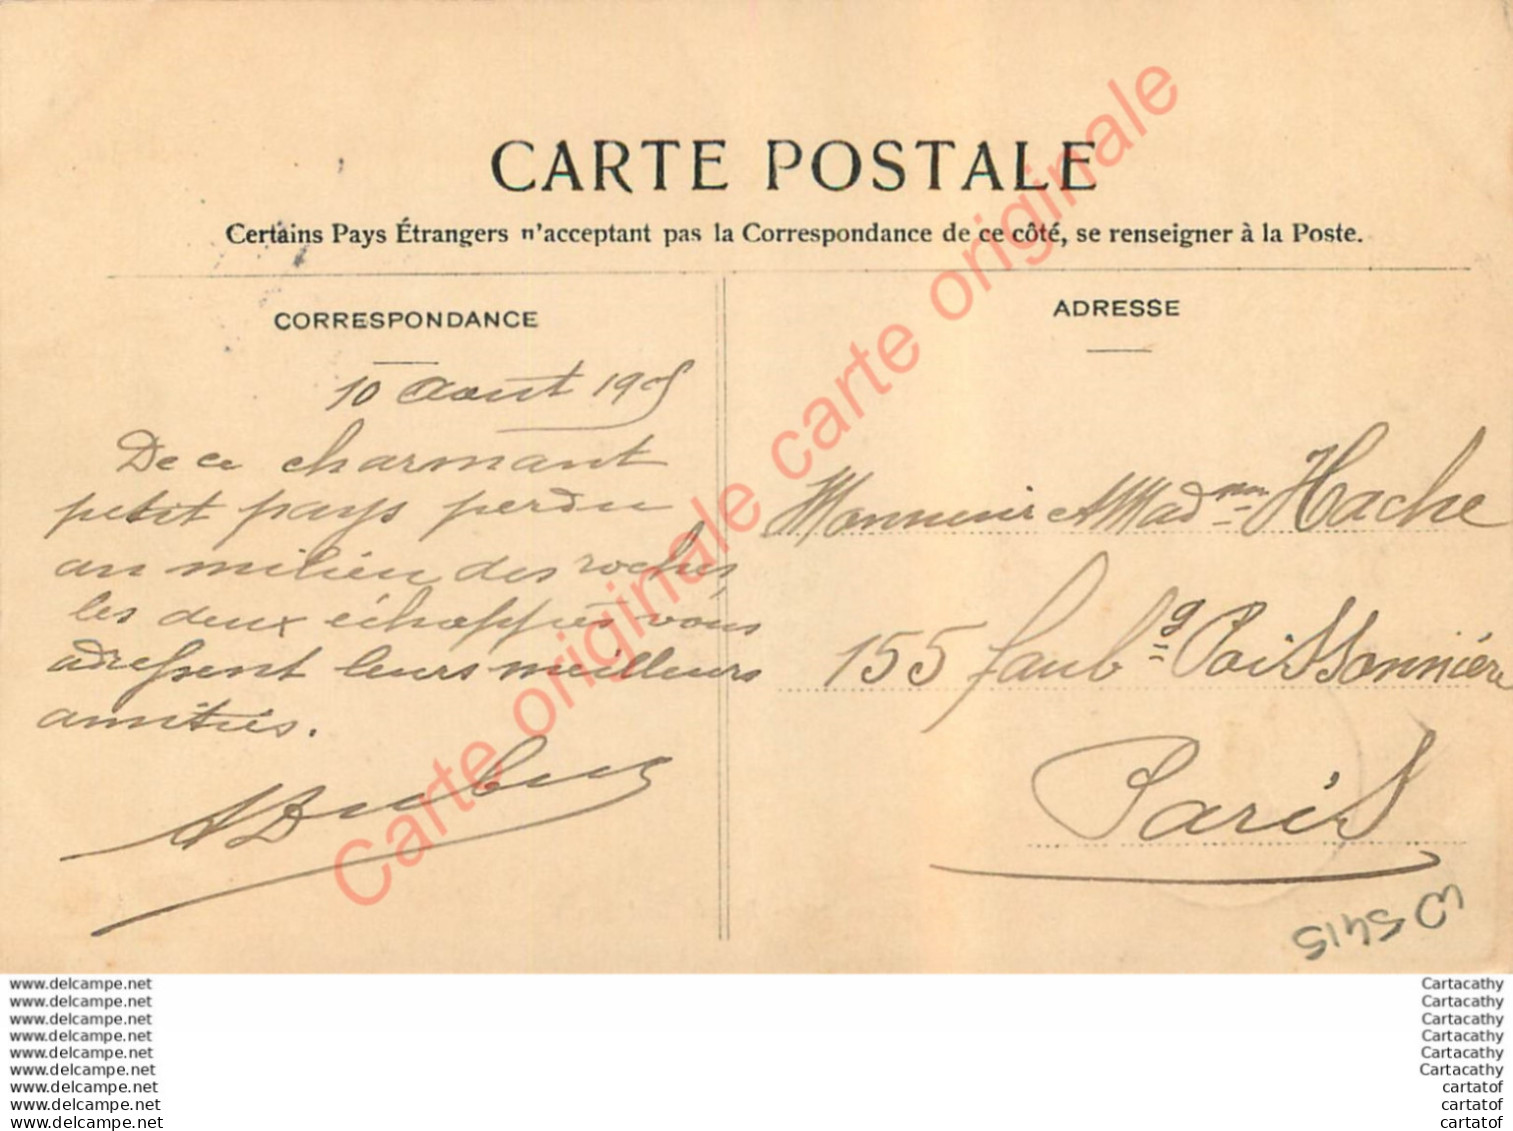 CARTE POSTALE
Certains Pays Étrangers n'acceptant pas la Correspondance de ce côté, se renseigner à la Poste.
CORRESPONDANCE
10 Aout 1905
De ce charmant
petit pays perdu
au milieu des roches
les deux échappés vous
adressent leurs meilleurs
amitiés.
ADRESSE
Monsieur et Madme Hache
155 faubg Poissonnière
Paris
5415
Carte originale carte originale
www.delcampe.net
www.delcampe.net
www.delcampe.net
www.delcampe.net
www.delcampe.net
www.delcampe.net
www.delcampe.net
www.delcampe.net
www.delcampe.net
Cartacathy
Cartacathy
Cartacathy
Cartacathy
Cartacathy
Cartacathy
cartatof
cartatof
cartatof